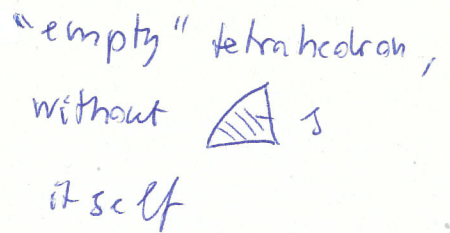 "empty" tetrahedron,
without s
itself